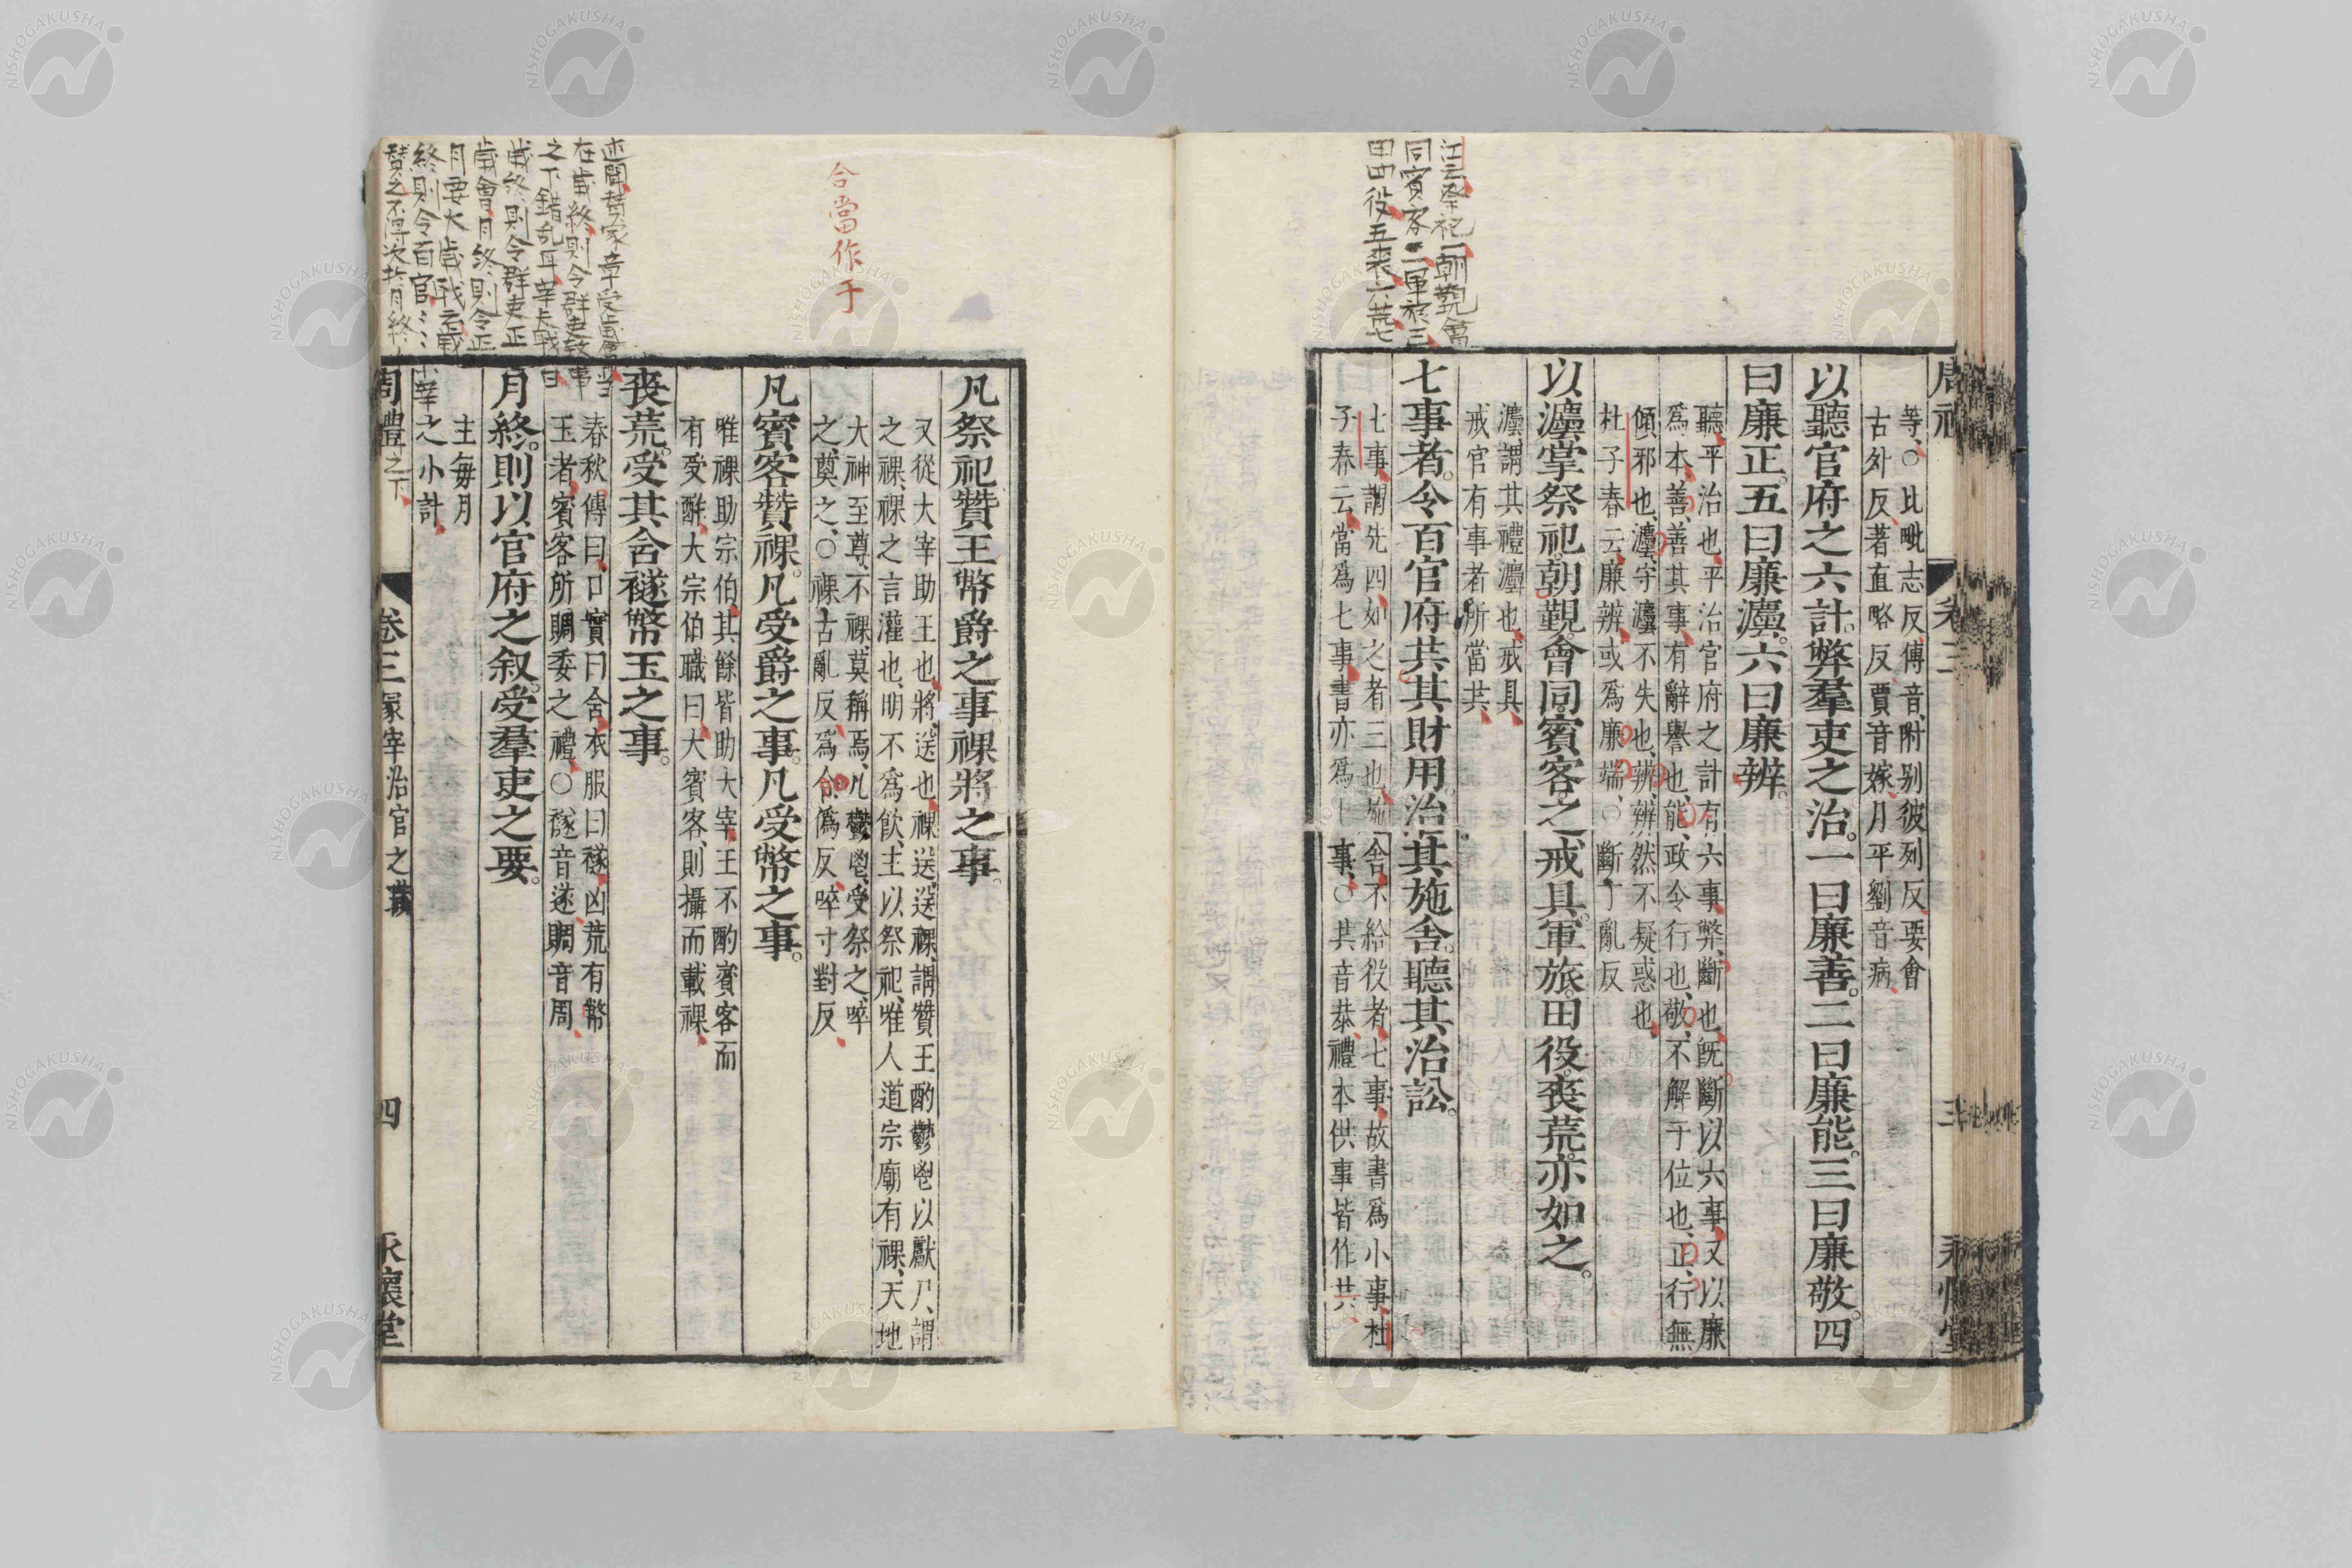 江云祭祀一朝覲會
同賓客二軍旅三
田四役五喪六荒七
等、○比毗志反傅音附别彼列反要會
古外反著直略反賈音嫁月平劉音病
以聽官府之六計。弊羣吏之治。一曰廉善。二曰廉能。三曰廉敬。四
曰廉正。五曰廉灋。六曰廉辨。
聽、平治也、平治官府之計有六事、弊、斷也、既斷以六事、又以廉
爲本、善、善其事、有辭譽也、能、政令行也、敬、不解于位也、正、行無
傾邪也、灋、守灋不失也、辨、辨然不疑惑也、
杜子春云、廉辨、或爲廉端、○斷丁亂反
以灋掌祭祀。朝覲。會同。賓客。之戒具。軍旅。田役。喪荒。亦如之。
灋、謂其禮灋也、戒具、
戒官有事者所當共、
七事者。令百官府共其財用。治其施舍。聽其治訟。
七事、謂先四、如之者三也、施舍、不給役者、七事、故書爲小事、杜
子春云、當爲七事、書亦爲七事、○共音恭、禮本供事皆作共、
合當作于
凡祭祀。贊王幣爵之事。祼將之事。
又從大宰助王也、將、送也、祼送、送祼、謂贊王酌鬱鬯以獻尸、謂
之祼、祼之言灌也、明不爲飲、主以祭祀、唯人道宗廟有祼、天地
大神至尊、不祼、莫稱焉、凡鬱鬯、受祭之、啐
之、奠之、○祼古亂反、爲合僞反、啐寸對反、
凡賓客。贊祼。凡受爵之事。凡受幣之事。
唯祼助宗伯、其餘皆助大宰、王不酌賓客而
有受酢、大宗伯職曰、大賓客、則攝而載祼、
喪荒。受其含襚幣玉之事。
春秋傳曰、口實曰含、衣服曰襚、凶荒有幣
玉者、賓客所賙委之禮、○襚音遂、賙音周、
月終。則以官府之叙。受羣吏之要。
主每月
之小計、
周禮之下
卷三冢宰治官之職
四
永懷堂
述聞贊冢宰受歲會當
在歲終則令群吏致事
之下錯乱耳宰夫職曰
歲終則令群吏正
歲會月終則令正
月要大歲職云歲
終則令百官
贊之不得次於月終